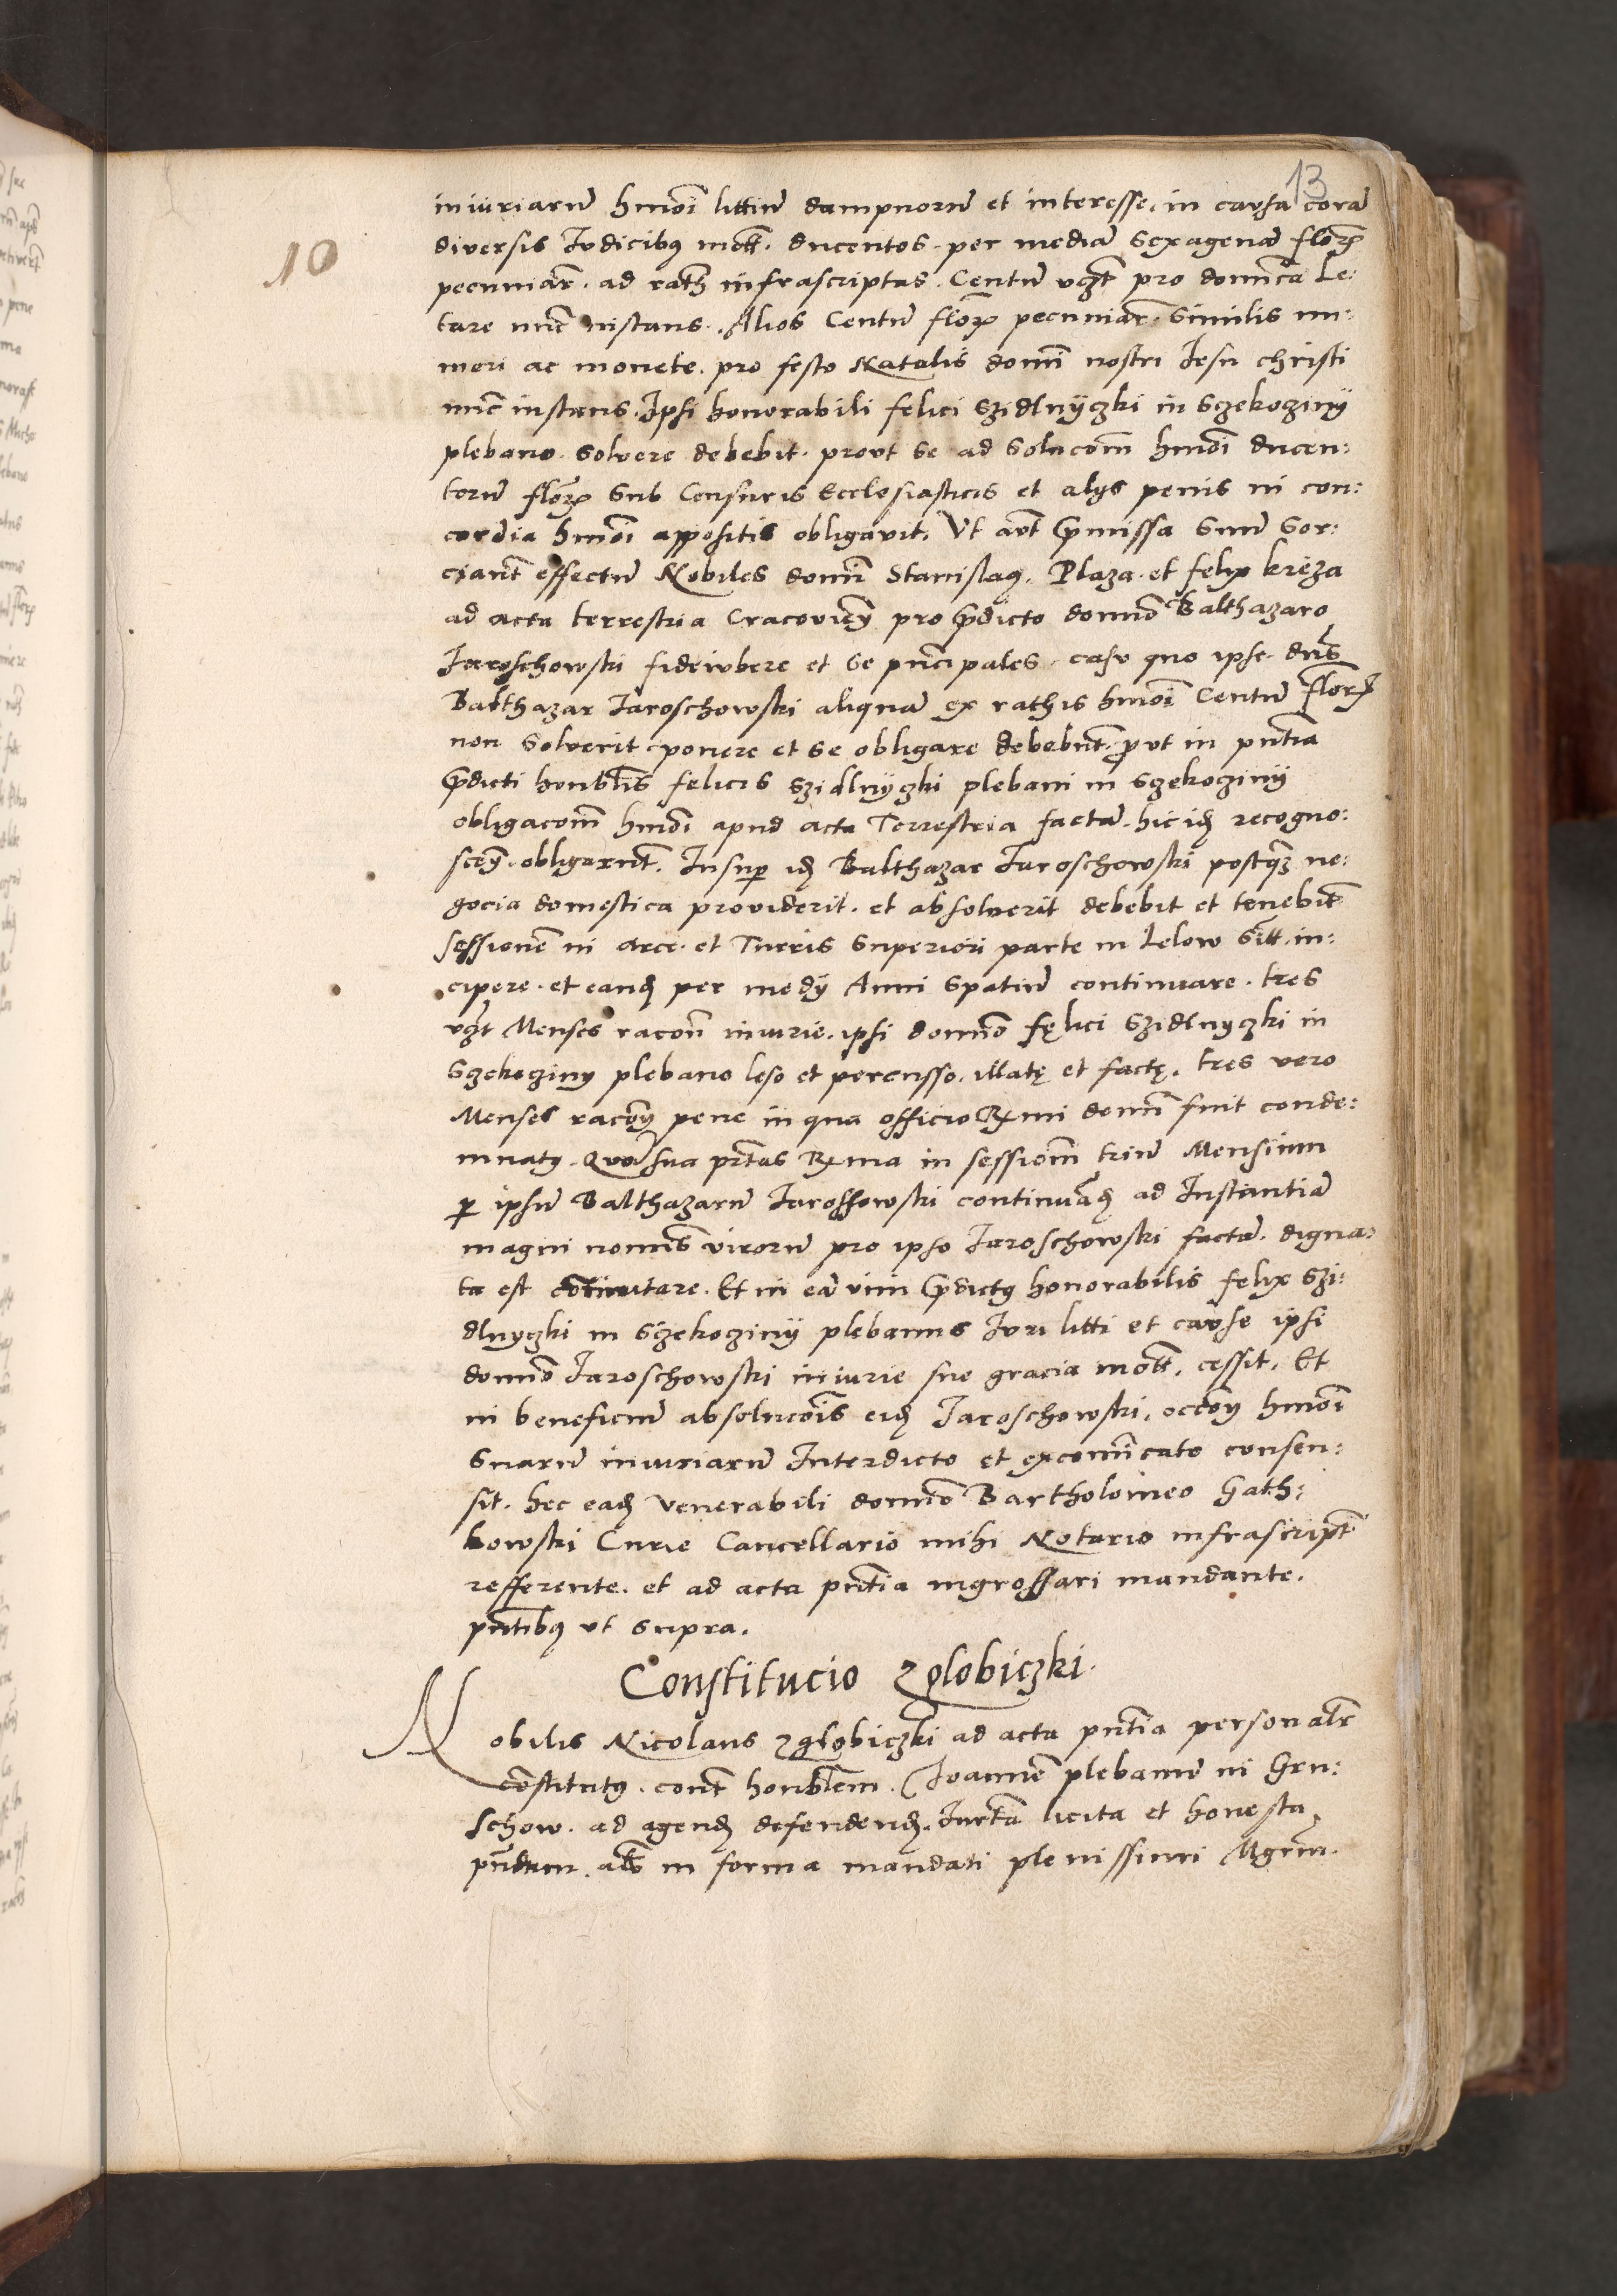 13
10
iniuriarũ hmõi littiũ dampnorũ et interesse, in causa corã
diversis Iudicibus mott. ducentos per mediã sexagenã florẽ
pecuniar. ad rath infrascriptas. Centũ vczt pro dominica Le:
tare nũc instans. Alios Centũ floꝝ pecuniar similis nu:
meri ac monete. pro festo Natalis domi nostri Jesu christi
nũc instans. Ipsi honorabili felici Szidlnyczki in Sczekocziny
plebano. Solvere debebit. prout se ad Solucom hmõi ducen:
torũ floꝝ Sub Censuris Ecclesiasticis et alys penis in con:
cordia hmõi appositis obligavit. Ut aũt p̃missa suũ sor:
ciant effectũ Nobiles domini Stanislaus. Plaza. et felix kreza
ad acta terrestria Cracovien pro p̃dicto domno Balthazaro
Jaroschowski fideiubere et se principales. casu quo ipse dñs
Balthazar Jaroschowski aliquã ex rathis hmõi Centũ floꝝ
non Solverit ponere et se obligare debebũt. prout in pñtia
p̃dicti honblis felicis Szidlnyczki plebani in Sczekoczinÿ
obligacom hmõi apud acta Terrestria factã. hic idẽ recogno:
scen. obligarũt. Insuper idẽ Balthazar Jaroschowski postqã ne:
gocia domestica providerit. et absolverit debebit et tenebit
sessionẽ in arce. et Turris Superiori parte in Lelow sitt. in:
cipere. et eandẽ per medÿ Anni Spatiũ continuare. tres
vczt Menses racon iniurie. ipsi domno felici Szidlnyczki in
Sczekoczinÿ plebano leso et percusso. illatę et factę. tres vero
Menses racon pene in qua officio Rx̃mi domĩ fuit conde:
mnatus. Quã sua pr̃tas Rx̃ma in sessionẽ triũ Mensium
per ipsũ Balthazarũ Jarossowski continuãdã ad Instantiã
magni nominis virorũ pro ipso Jaroschowski factã. digna:
ta est cõmutare. Et in eã vim p̃dictus honorabilis felix Szi:
dlnyczki in Sczekoczinÿ plebanus Iuri litti et cause ipsi
domno Jaroschowski iniurie sue gracia mott. cessit. Et
in beneficiũ absolucõis eidẽ Jaroschowski. occõn hmõi
suarũ iniuriarũ Interdicto et excomicato consen:
sit. hec eadẽ Venerabili domno Bartholomeo Gath:
kowski Curie Cancellario mihi Notario infrascript
refferente. et ad acta pñtia ingrossari mandante.
pñtibus ut supra.
Constitucio Zglobiczki.
Nobilis Nicolaus Zglobiczki ad acta pñtia personalr
constitutus. cont honblem. Joannẽ plebanũ in Gru:
schow. ad agendũ defendendũ. Iurtã licita et honesta
pñdum. abs in forma mandati plenissimi Mgrm.